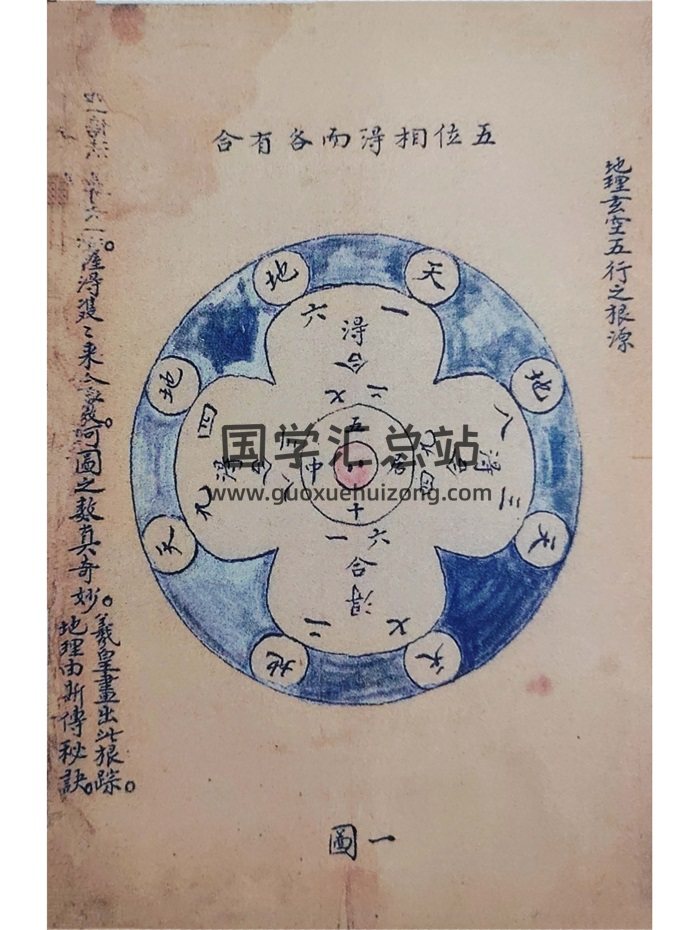 五位相得而各有合
地理玄空五行之根源
天
地
地
天
地
天
地
天
一 六
得
合
二 七
八 三
得
合
九 四
四 九
得
七 二
得
合
六 一
五
十
中
得雙雙來合
河圖之數真奇妙。
羲皇畫出此根踪。
地理由斯傳秘訣。
圖一
国学汇总站
www.guoxuehuizong.com